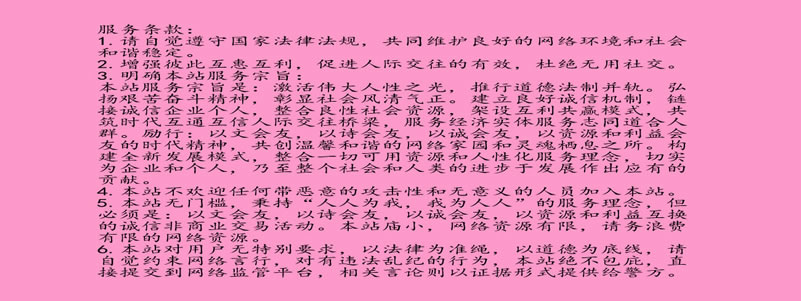 服务条款：
1. 请自觉遵守国家法律法规，共同维护良好的网络环境和社会
和谐稳定。
2. 增强彼此互惠互利，促进人际交往的有效，杜绝无用社交。
3. 明确本站服务宗旨：
本站服务宗旨是：激活伟大人性之光，推行道德法制并轨。弘
扬艰苦奋斗精神，彰显社会风清气正。建立良好诚信机制，链
接诚信企业个人，整合良性社会资源，架设互利共赢模式，共
筑时代互通互信人际交往桥梁，服务经济实体服务志同道合人
群。励行：以文会友，以诗会友，以诚会友，以资源和利益会
友的时代精神，共创温馨和谐的网络家园和灵魂栖息之所。构
建全新发展模式，整合一切可用资源和人性化服务理念，切实
为企业和个人，乃至整个社会和人类的进步于发展作出应有的
贡献。
4. 本站不欢迎任何带恶意的攻击性和无意义的人员加入本站。
5. 本站无门槛，秉持“人人为我，我为人人”的服务理念，但
必须是：以文会友，以诗会友，以诚会友，以资源和利益互换
的诚信非商业交易活动。本站庙小，网络资源有限，请务浪费
有限的网络资源。
6. 本站对用户无特别要求，以法律为准绳，以道德为底线，请
自觉约束网络言行，对有违法乱纪的行为，本站绝不包庇，直
接提交到网络监管平台，相关言论则以证据形式提供给警方。